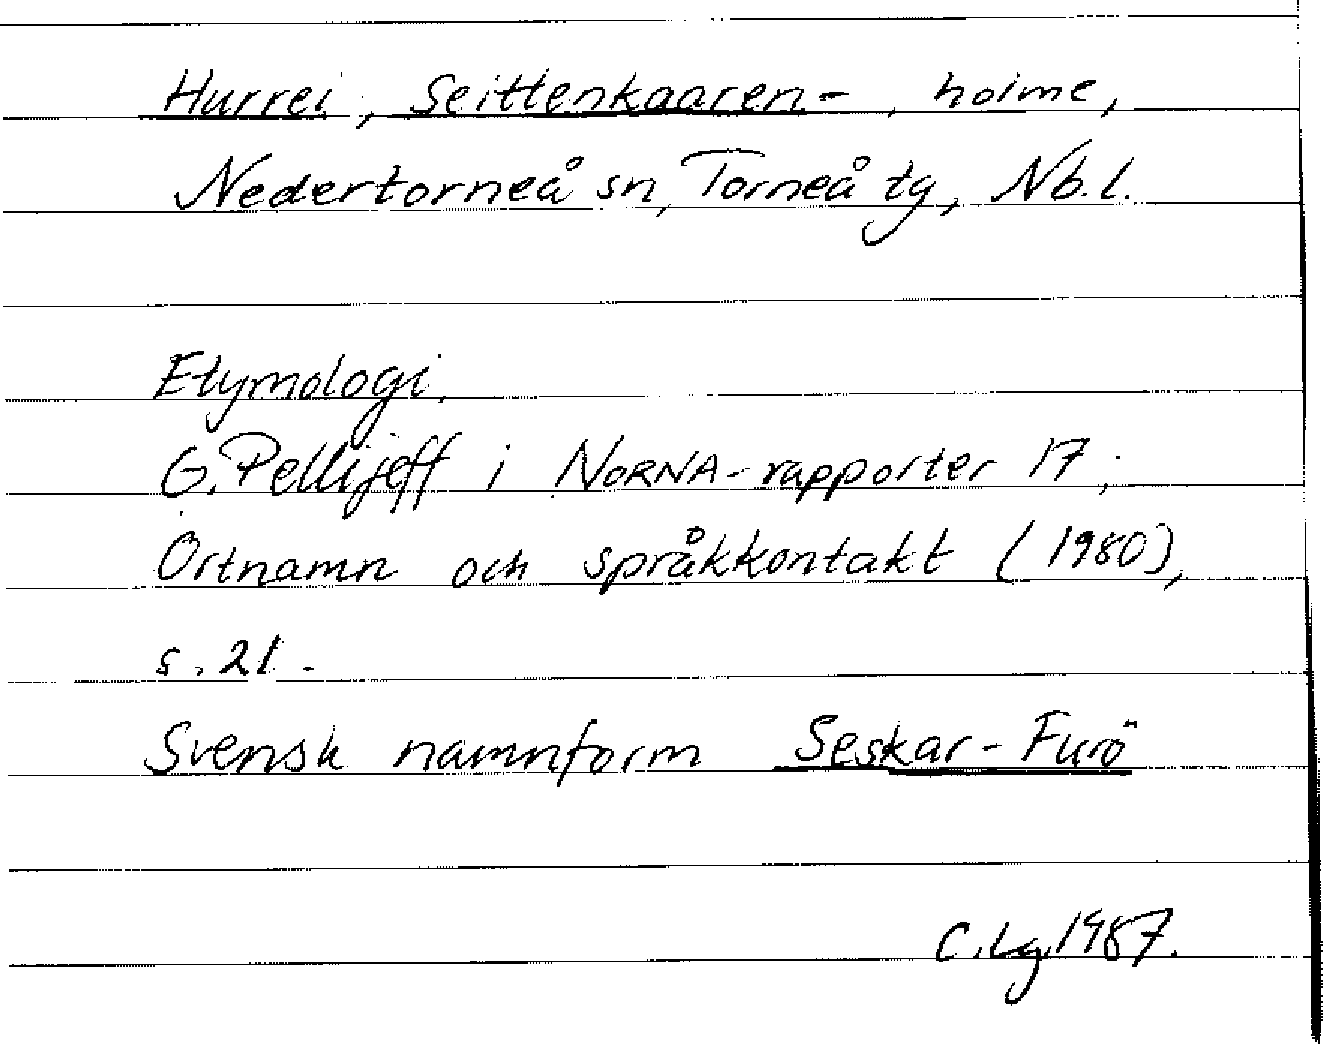 Hurrei, Seittenkaaren-, holme,
Nedertorneå sn, Torneå tg, Nb.l.
Etymologi.
G. Pellijeff i NORNA-rapporter 17,
Ortnamn och språkkontakt (1980),
s. 21.
Svensk namnform Seskar-Furö
C.Lg. 1987.